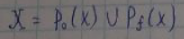 X = P₀(x) ∪ P_f(x)